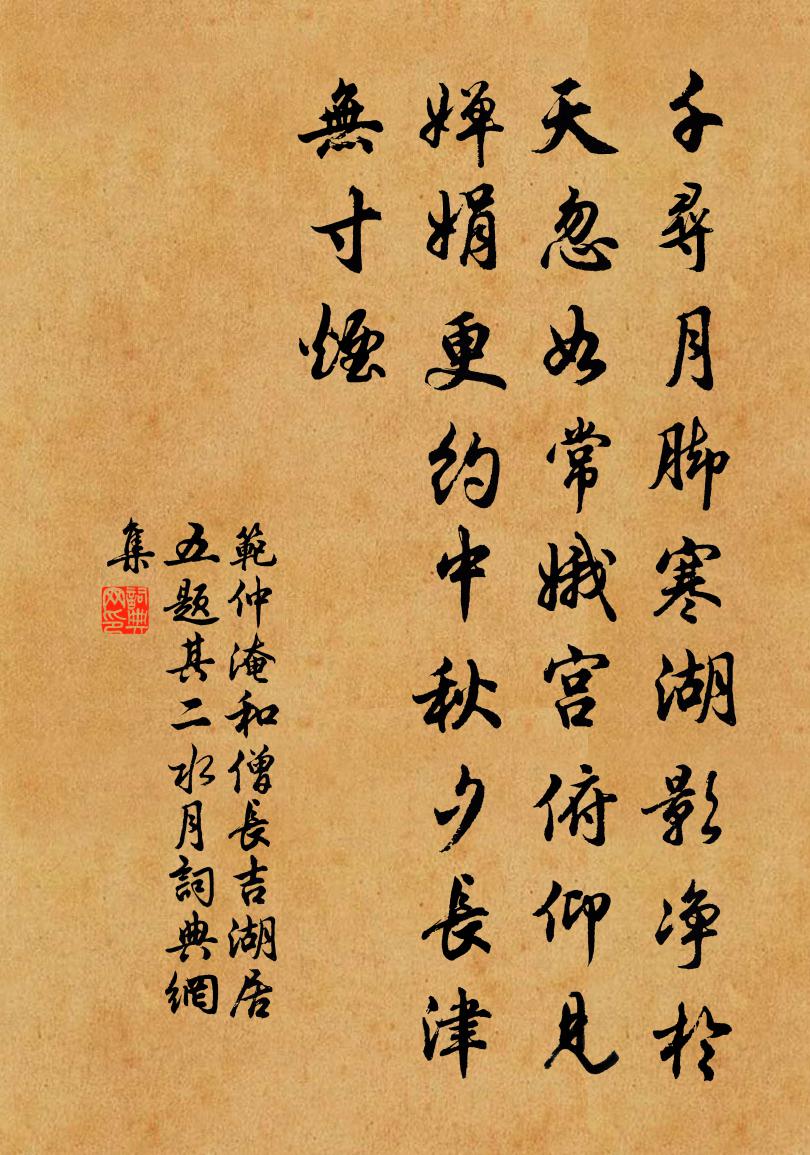 千尋月脚寒湖影浄於
天忽如常娥宫俯仰見
嬋娟更约中秋夕長津
無寸煙
範仲淹和僧長吉湖居
五題其二水月詞典網
集
詞典网印